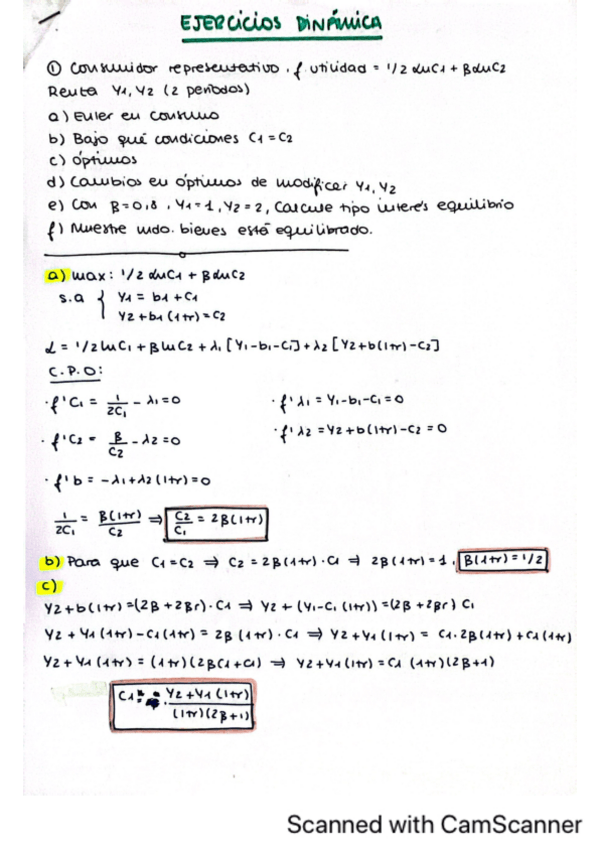 EJERCICIOS DINÁMICA
① Consumidor representativo. f. utilidad = 1/2 lnC1 + BlnC2
Renta Y1, Y2 (2 periodos)
a) Euler en consumo
b) Bajo qué condiciones C1 = C2
c) óptimos
d) Cambios en óptimos de modificar Y1, Y2
e) Con B=0,8, Y1=1, Y2=2, Calcule tipo interés equilibrio
f) Muestre mdo. bienes está equilibrado.
a) max: 1/2 lnC1 + BlnC2
s.a { Y1 = b1 + C1
Y2 + b1 (1+r) = C2
L = 1/2 lnC1 + BlnC2 + λ1 [Y1-b1-C1] + λ2 [Y2+b(1+r)-C2]
C.P.O:
· f'C1 = 1/2C1 - λ1 = 0
· f'λ1 = Y1-b1-C1 = 0
· f'C2 = B/C2 - λ2 = 0
· f'λ2 = Y2+b(1+r)-C2 = 0
· f'b = -λ1+λ2 (1+r) = 0
1/2C1 = B(1+r)/C2 ⇒ C2/C1 = 2B(1+r)
b) Para que C1 = C2 ⇒ C2 = 2B(1+r)·C1 ⇒ 2B(1+r) = 1. B(1+r) = 1/2
c)
Y2+b(1+r) = (2B+2Br)·C1 ⇒ Y2 + (Y1-C1 (1+r)) = (2B+2Br) C1
Y2 + Y1 (1+r) - C1 (1+r) = 2B (1+r)·C1 ⇒ Y2+Y1 (1+r) = C1·2B(1+r) + C1(1+r)
Y2 + Y1 (1+r) = (1+r)(2BC1+C1) ⇒ Y2+Y1 (1+r) = C1 (1+r)(2B+1)
C1 = Y2+Y1 (1+r)/(1+r)(2B+1)
Scanned with CamScanner